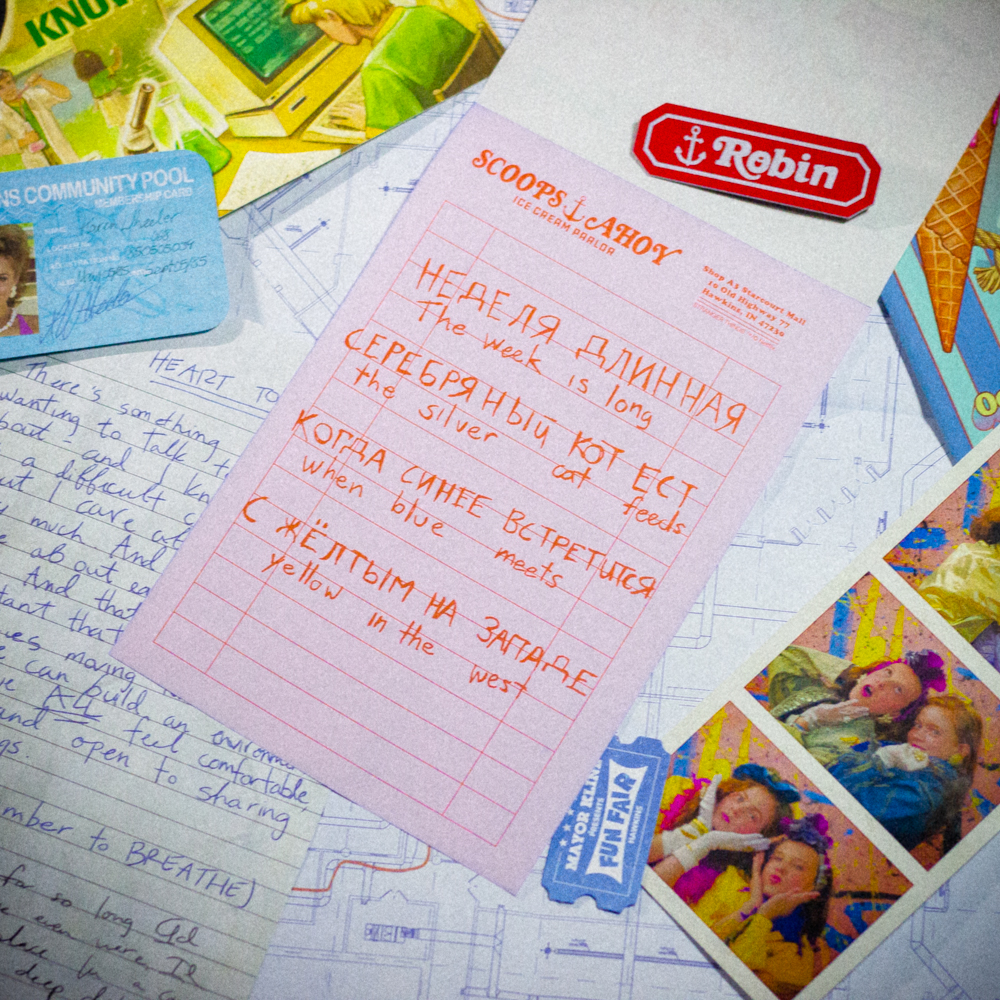 KNOW
NS COMMUNITY POOL
MEMBERSHIP CARD
Robin
SCOOPS AHOY
ICE CREAM PARLOR
Shop A5 Starcourt Mall
10 Old Highway 77
Hawkins, IN 47230
НЕДЕЛЯ ДЛИННАЯ
The week is long
СЕРЕБРЯНЫЙ КОТ ЕСТ
the silver cat feeds
КОГДА СИНЕЕ ВСТРЕТИТСЯ
when blue meets
С ЖЁЛТЫМ НА ЗАПАДЕ
yellow in the west
HEART TO
There's something
wanting to talk t
bout - and I kn
a difficult c
ut I care ab
y much And
e about ea
And that
tant that
ues moving
e can build an environme
ALL feel comfortable
and open to sharing
gs.
mber to BREATHE)
for so long I'd
MAYOR KLIN
PRESENTS
FUN FAIR
HAWKINS